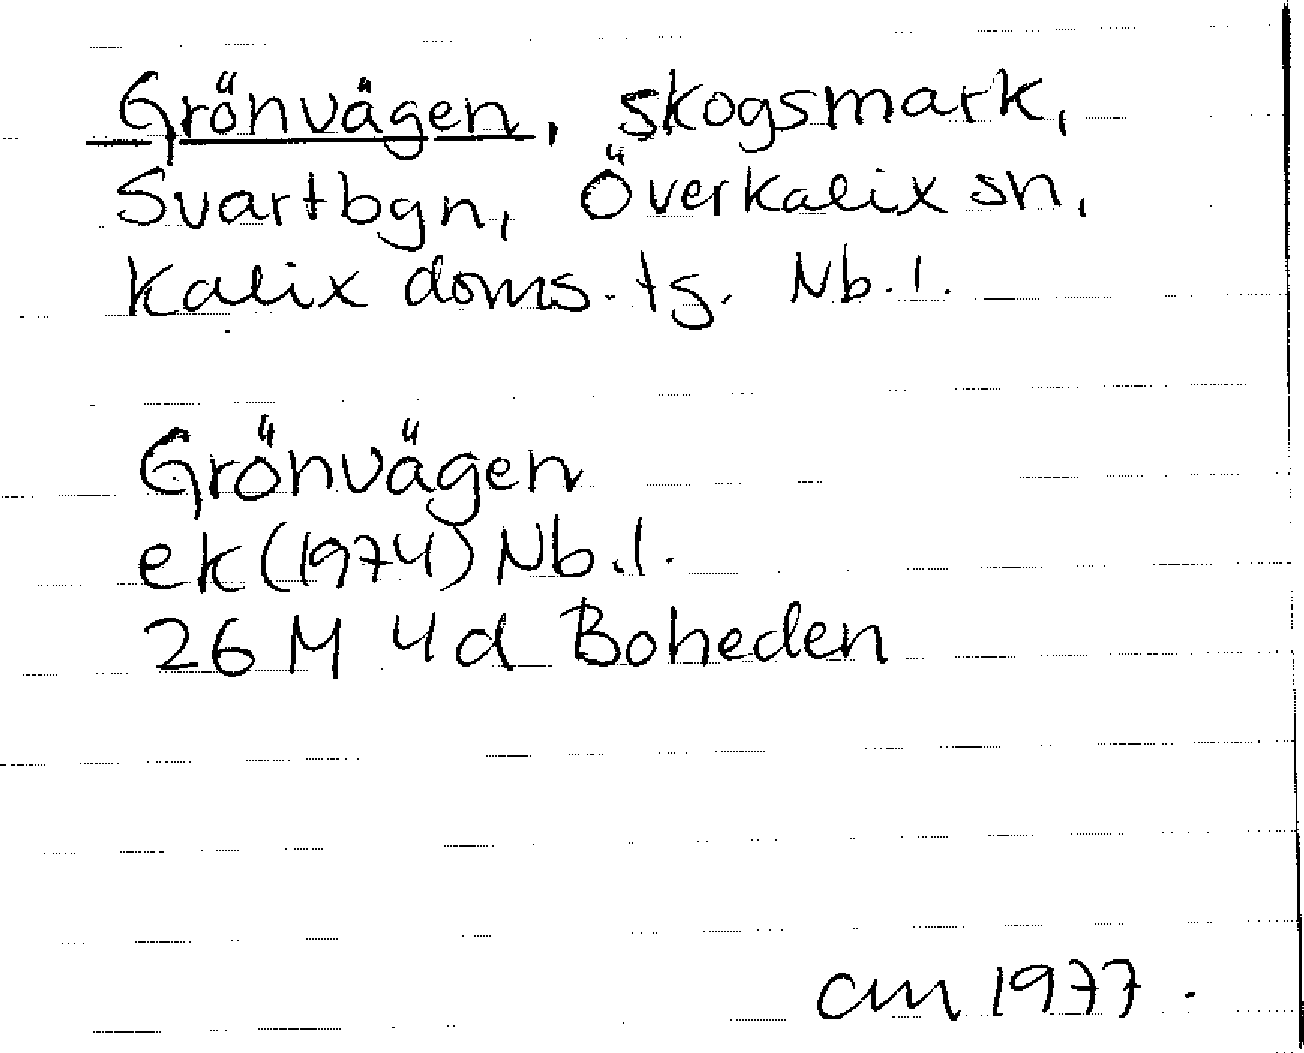 Grönvägen, skogsmark,
Svartbgn, Överkalix sn,
Kalix doms. tg. Nb. l.
Grönvägen
ek (1974) Nb. l.
26 M 4d Boheden
am 1977.